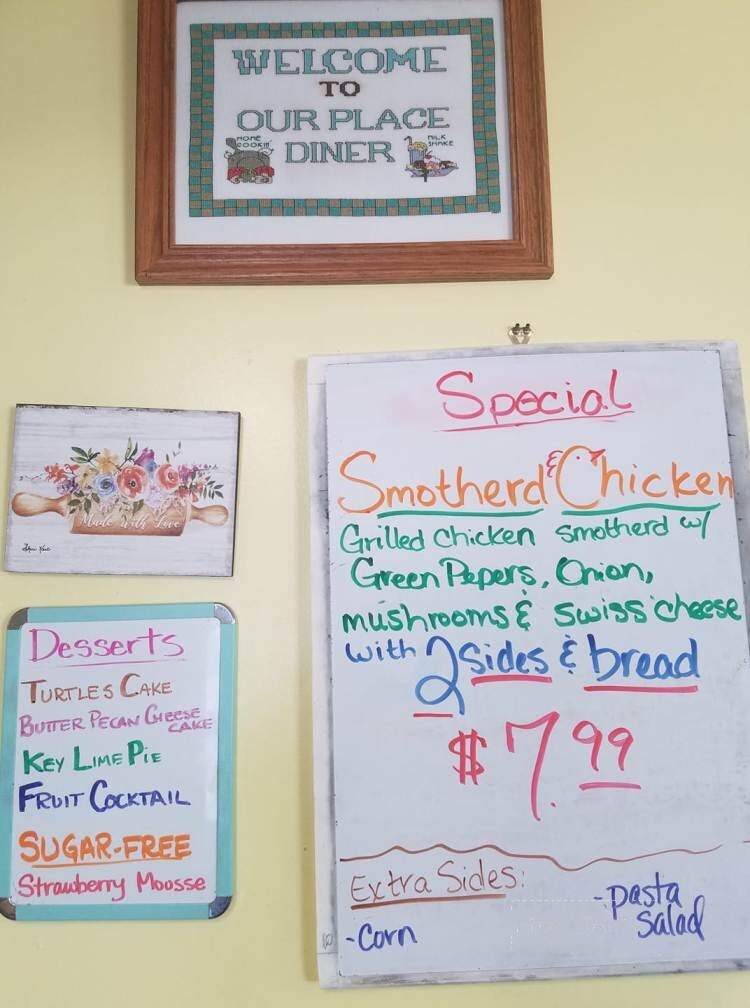 WELCOME
TO
OUR PLACE
DINER
HOME
COOKIN
MILK
SHAKE
Made with Love
Special
Smotherd Chicken
Grilled Chicken smotherd w/
Green Pepers, Onion,
mushrooms & swiss cheese
with 2 Sides & bread
$7.99
Extra Sides:
-Corn
-pasta
salad
Desserts
TURTLES CAKE
BUTTER PECAN CHEESE
CAKE
KEY LIME PIE
FRUIT COCKTAIL
SUGAR-FREE
Strawberry Moosse